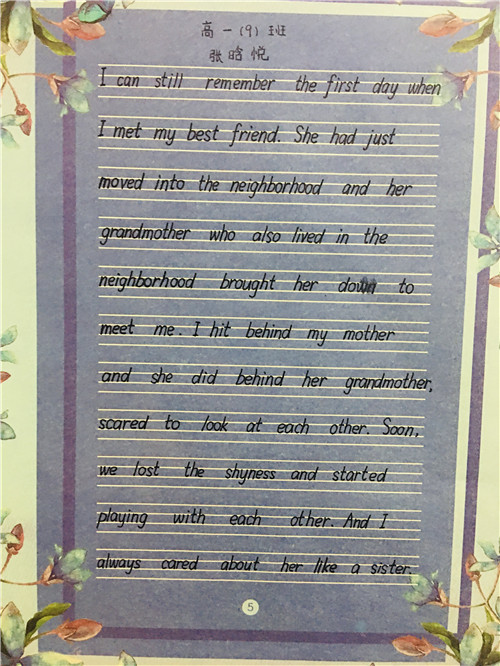 高一(9)班
张晗悦
I can still remember the first day when
I met my best friend. She had just
moved into the neighborhood and her
grandmother who also lived in the
neighborhood brought her down to
meet me. I hit behind my mother
and she did behind her grandmother,
scared to look at each other. Soon,
we lost the shyness and started
playing with each other. And I
always cared about her like a sister.
5